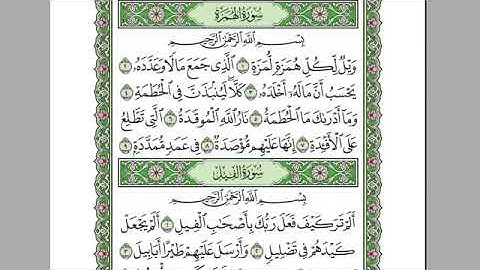 سُورَةُ الهُمَزَةِ
بِسْمِ اللَّهِ الرَّحْمَٰنِ الرَّحِيمِ
وَيْلٌ لِّكُلِّ هُمَزَةٍ لُّمَزَةٍ ١ الَّذِي جَمَعَ مَالًا وَعَدَّدَهُ ٢
يَحْسَبُ أَنَّ مَالَهُ أَخْلَدَهُ ٣ كَلَّا لَيُنبَذَنَّ فِي الْحُطَمَةِ ٤
وَمَا أَدْرَىٰكَ مَا الْحُطَمَةُ ٥ نَارُ اللَّهِ الْمُوقَدَةُ ٦ الَّتِي تَطَّلِعُ
عَلَى الْأَفْئِدَةِ ٧ إِنَّهَا عَلَيْهِم مُّؤْصَدَةٌ ٨ فِي عَمَدٍ مُّمَدَّدَةٍ ٩
سُورَةُ الفِيلِ
بِسْمِ اللَّهِ الرَّحْمَٰنِ الرَّحِيمِ
أَلَمْ تَرَ كَيْفَ فَعَلَ رَبُّكَ بِأَصْحَابِ الْفِيلِ ١ أَلَمْ يَجْعَلْ
كَيْدَهُمْ فِي تَضْلِيلٍ ٢ وَأَرْسَلَ عَلَيْهِمْ طَيْرًا أَبَابِيلَ ٣